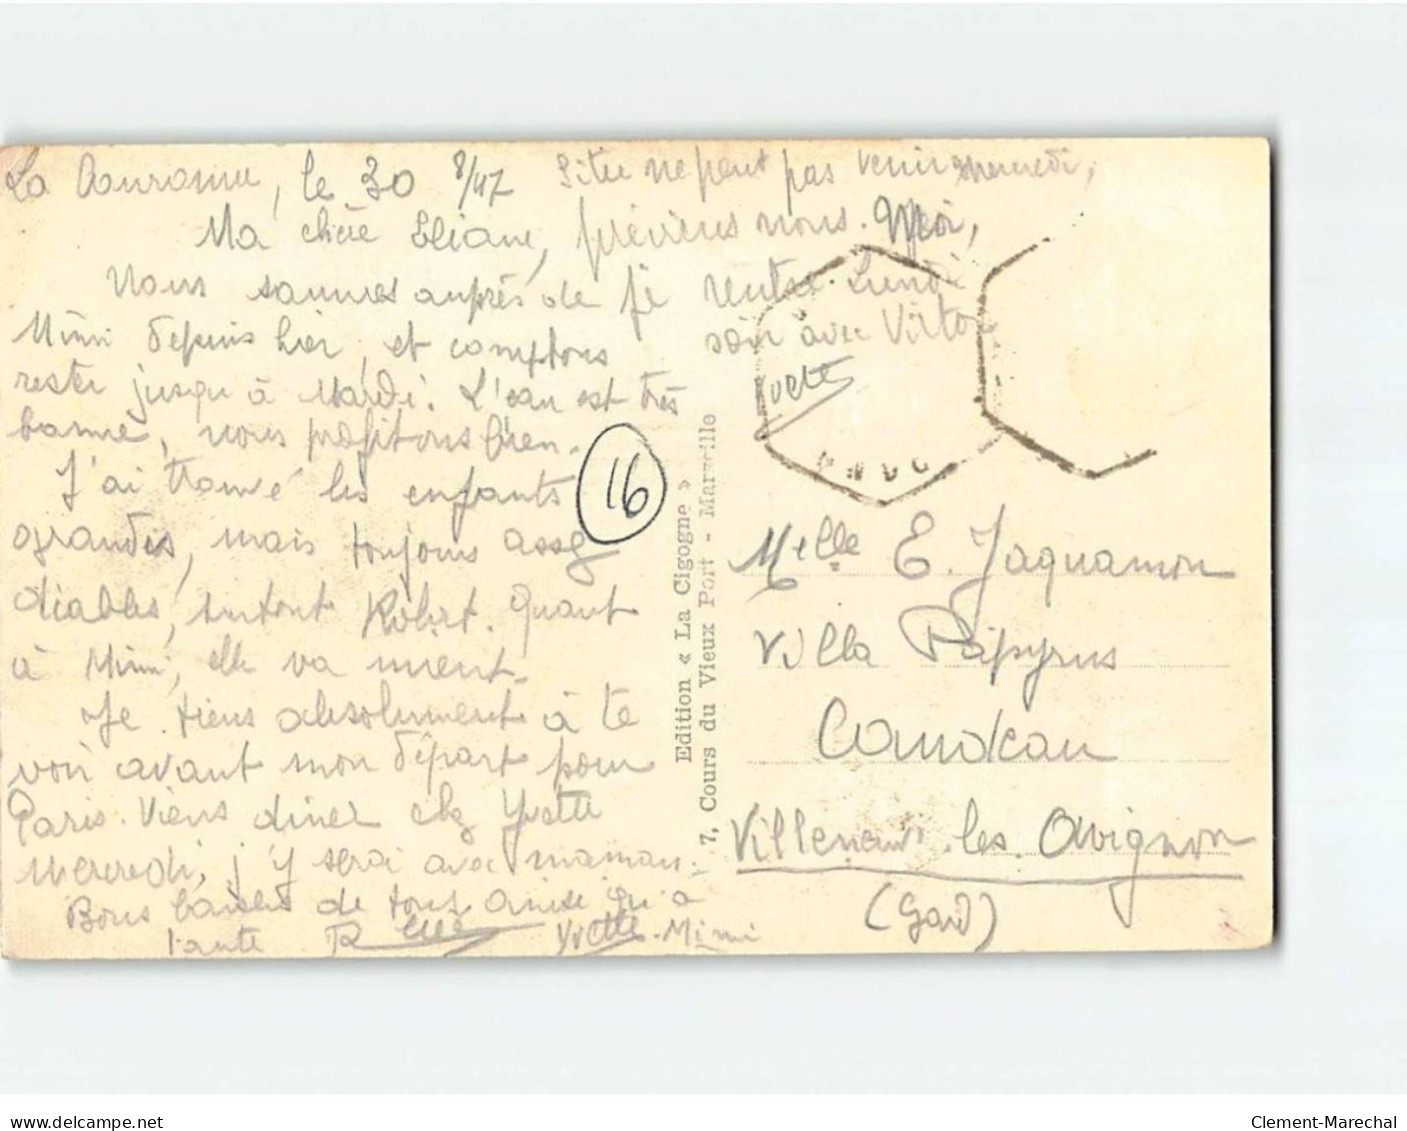 La Couronne, le 30 8/47
Ma chère Eliane,
Nous sommes auprès de
Mimi depuis hier, et comptons
rester jusqu'à Mardi. L'eau est très
bonne, nous profitons bien.
J'ai trouvé les enfants
grandis, mais toujours assez
diables, surtout Robert. Quant
à Mimi, elle va mieux.
Je tiens absolument à te
voir avant mon départ pour
Paris. Viens diner chez Yvette
Mercredi, j'y serai avec maman.
Bons baisers de tous ainsi qu'à
tante Yvette Mimi
Si tu ne peux pas venir mercredi,
préviens nous. Moi,
je rentre Lundi
soir avec Victor
Yvette
16
Edition « La Cigogne »
7, Cours du Vieux Port - Marseille
Melle E. Jaquamon
Villa Papyrus
Candeau
Villeneuve les Avignon
(Gard)
Clement-Marechal